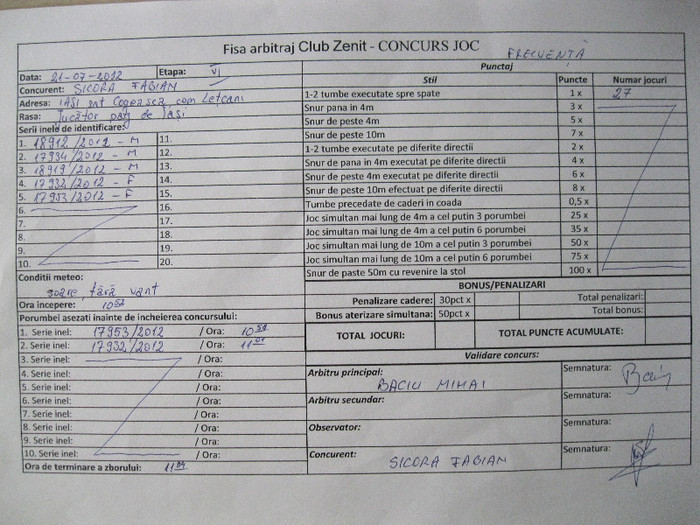 Fisa arbitraj Club Zenit - CONCURS JOC
FRECVENTĂ
Data: 21-07-2012 Etapa: VI
Concurent: SICORA FABIAN
Adresa: IAȘI sat Cogeasca com Lețcani
Rasa: Jucător pag de Iași
Serii inele de identificare:
1. 18912/2012 - M 11.
2. 17934/2012 - M 12.
3. 18919/2012 - M 13.
4. 17932/2012 - F 14.
5. 17953/2012 - F 15.
6. 16.
7. 17.
8. 18.
9. 19.
10. 20.
Conditii meteo:
soare, fără vant
Ora incepere: 10 52
Porumbei asezati inainte de incheierea concursului:
1. Serie inel: 17953/2012 / Ora: 10 58
2. Serie inel: 17932/2012 / Ora: 11 01
3. Serie inel: / Ora:
4. Serie inel: / Ora:
5. Serie inel: / Ora:
6. Serie inel: / Ora:
7. Serie inel: / Ora:
8. Serie inel: / Ora:
9. Serie inel: / Ora:
10. Serie inel: / Ora:
Ora de terminare a zborului: 11 04
Punctaj
Stil Puncte Numar jocuri
1-2 tumbe executate spre spate 1 x 27
Snur pana in 4m 3 x
Snur de peste 4m 5 x
Snur de peste 10m 7 x
1-2 tumbe executate pe diferite directii 2 x
Snur de pana in 4m executat pe diferite directii 4 x
Snur de peste 4m executat pe diferite directii 6 x
Snur de peste 10m efectuat pe diferite directii 8 x
Tumbe precedate de caderi in coada 0,5 x
Joc simultan mai lung de 4m a cel putin 3 porumbei 25 x
Joc simultan mai lung de 4m a cel putin 6 porumbei 35 x
Joc simultan mai lung de 10m a cel putin 3 porumbei 50 x
Joc simultan mai lung de 10m a cel putin 6 porumbei 75 x
Snur de paste 50m cu revenire la stol 100 x
BONUS/PENALIZARI
Penalizare cadere: 30pct x Total penalizari:
Bonus aterizare simultana: 50pct x Total bonus:
TOTAL JOCURI: TOTAL PUNCTE ACUMULATE:
Validare concurs:
Arbitru principal: Semnatura:
BACIU MIHAI
Arbitru secundar: Semnatura:
Observator: Semnatura:
Concurent: Semnatura:
SICORA FABIAN